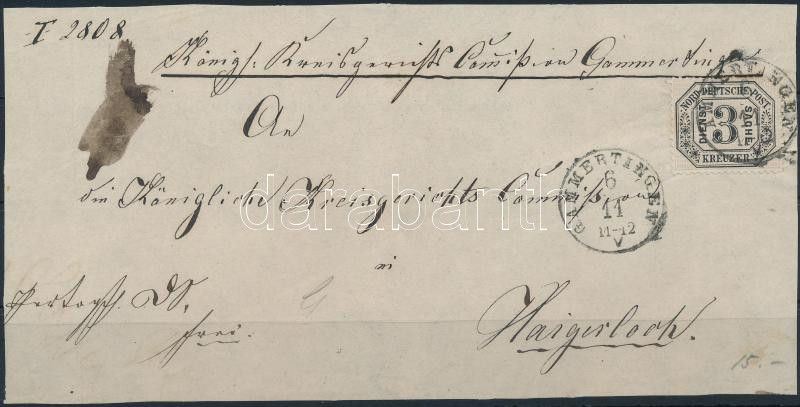 I 2808
Königl: Kreisgerichts Commission Gammertingen
An
die Königliche Kreisgerichts Commission
in
Haigerloch.
frei.
NORDDEUTSCHE-POST
DIENST SACHE
3
KREUZER
GAMMERTINGEN
6
11
11-12
V
GAMMERTINGEN
darabanth
15.-